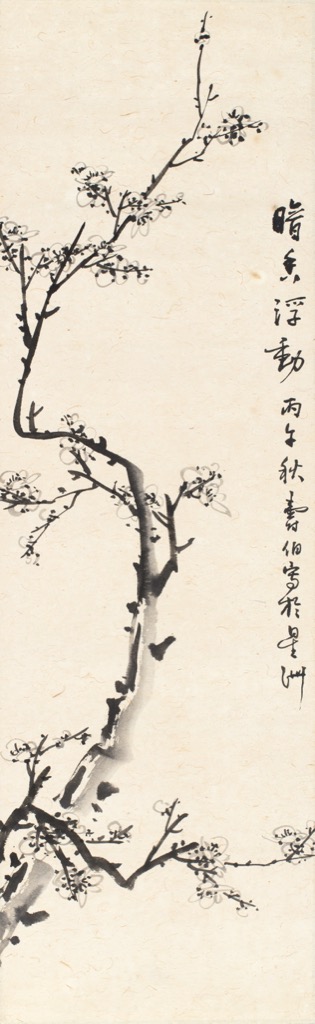 暗香浮動 丙午秋壽伯寫於星洲